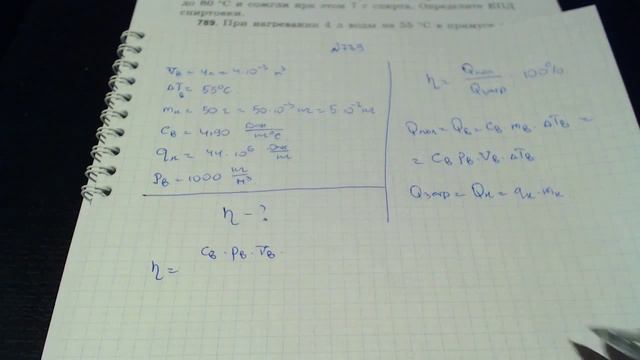 до 80 °С и сожгли при этом 7 г спирта. Определите КПД
спиртовки.
789. При нагревании 4 л воды на 55 °С в примусе
№789
Vв = 4л = 4·10⁻³ м³
ΔTв = 55°C
mк = 50 г = 50·10⁻³ кг = 5·10⁻² кг
Cв = 4190 Дж/кг°C
qк = 44·10⁶ Дж/кг
ρв = 1000 кг/м³
η - ?
η = Cв · ρв · Vв ·
η = Qпол/Qзатр · 100%
Qпол = Qв = Cв · mв · ΔTв =
= Cв ρв · Vв · ΔTв
Qзатр = Qк = qк · mк